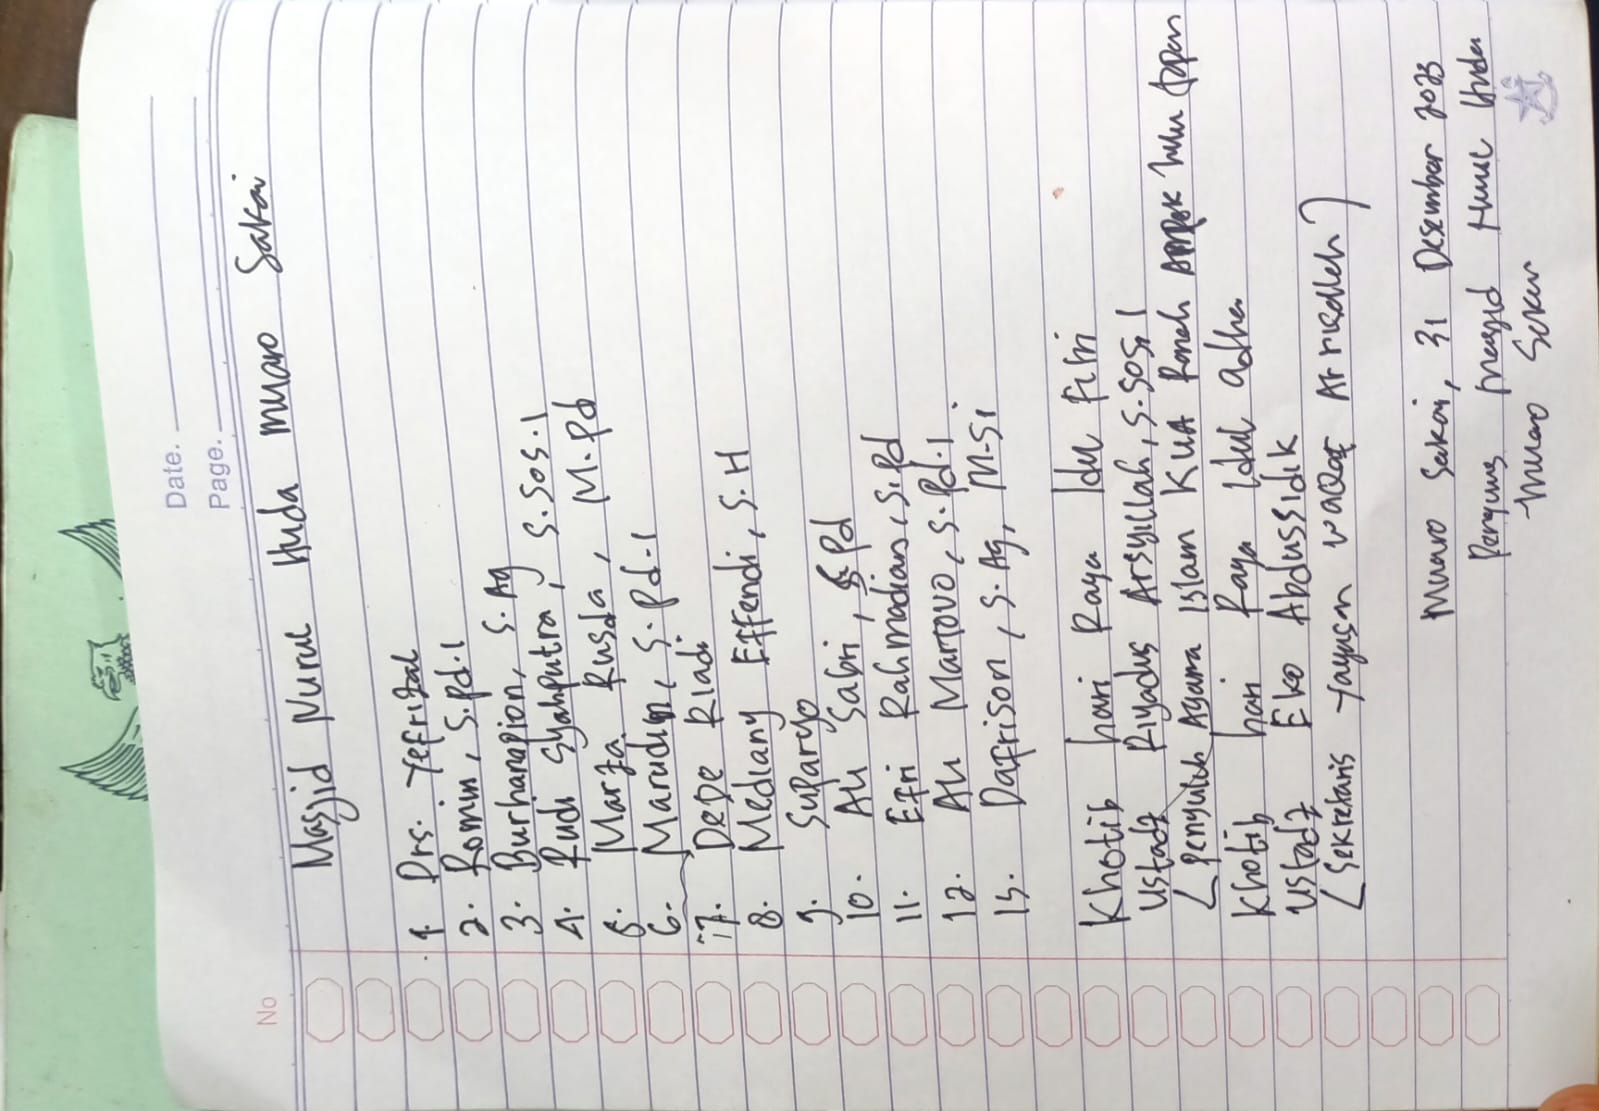 Date.
Page.
No
Masjid Nurul Huda Muaro Sakai
1. Drs. Yefrizal
2. Romin, S.Pd.I
3. Burhanapion, S. Ag
4. Rudi Syahputra, S.Sos.I
5. Marza Rusda, M.Pd
6. Marudin, S.Pd.I
7. Dede Riadi
8. Mediany Effendi, S.H
9. Suparyo
10. Ali Sabri, S Pd
11. Efri Rahmadian, S.Pd
12. Ali Martovo, S.Pd.I
13. Dafrison, S.Ag, M.Si
Khotib hari Raya Idul Fitri
Ustadz Riyadus Arsyillah, S.Sos.I
(Penyuluh Agama Islam KUA Ranah Ampek hulu Tapan
Khotib hari Raya Idul adha
Ustadz Eko Abdussidik
(Sekretaris Yayasan Waqaf Ar risallah)
Muaro Sakai, 31 Desember 2023
Pengurus Masjid Nurul Huda
Muaro Sakai